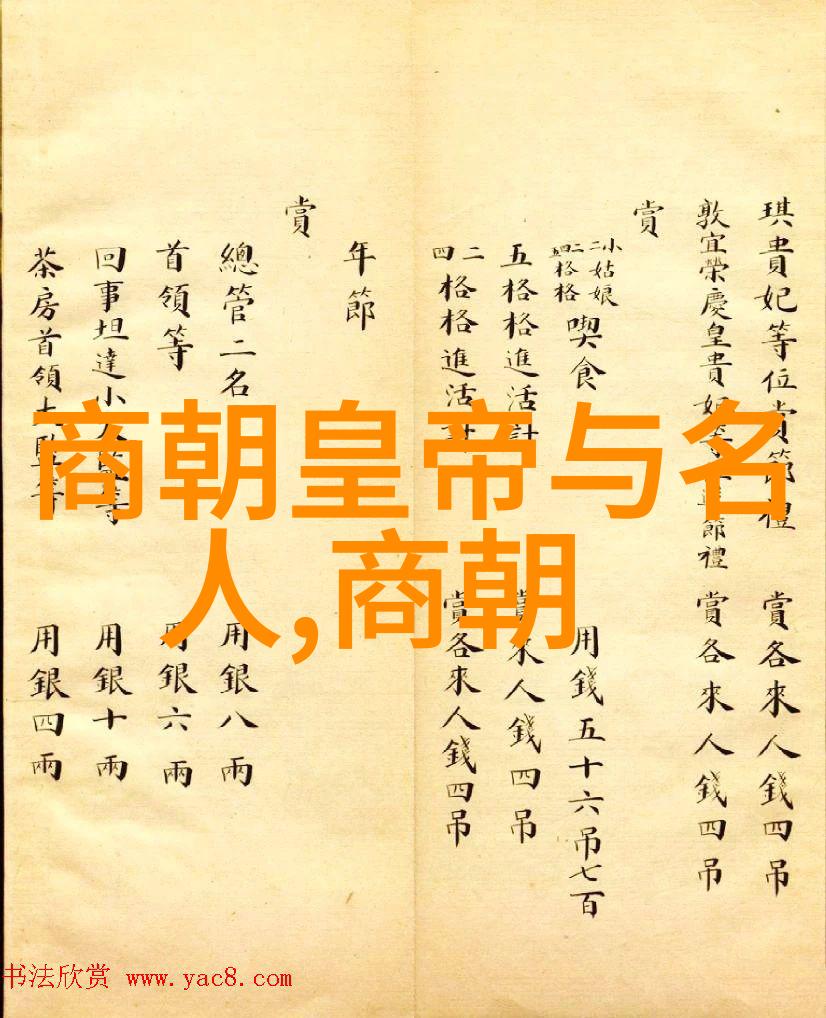 琪貴妃等位賞節禮 賞各來人錢四吊
敦宜榮慶皇貴妃等位 節禮 賞各來人錢四吊
賞
小二姑娘 格格 喫食 用錢五十六吊七百
五格格進活計 賞來人錢四吊
二四格格進活計 賞各來人錢四吊
年節
賞
總管二名 用銀八兩
首領等 用銀六兩
回事坦達小太監等 用銀十兩
茶房首領太監等 用銀四兩
商朝皇帝与名
人,商朝
书法欣赏 www.yac8.com